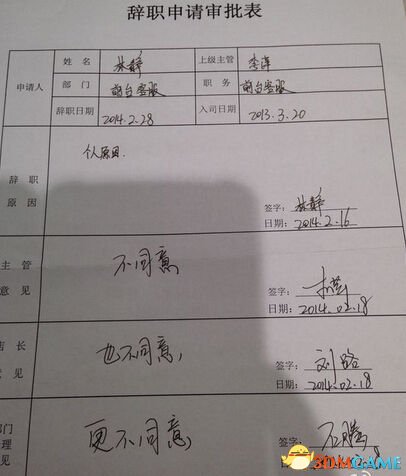 辞职申请审批表
申请人
姓名 林静 上级主管
部门 前台客服 职务 前台客服
辞职日期 2014.2.28 入司日期 2013.3.20
辞职
原因
个人原因.
签字: 林静
日期: 2014.2.16
主管
意见
不同意
签字:
日期: 2014.02.18
店长
意见
也不同意,
签字: 刘路
日期: 2014.02.18
部门
更不同意
签字: 石腾
3DMGAME